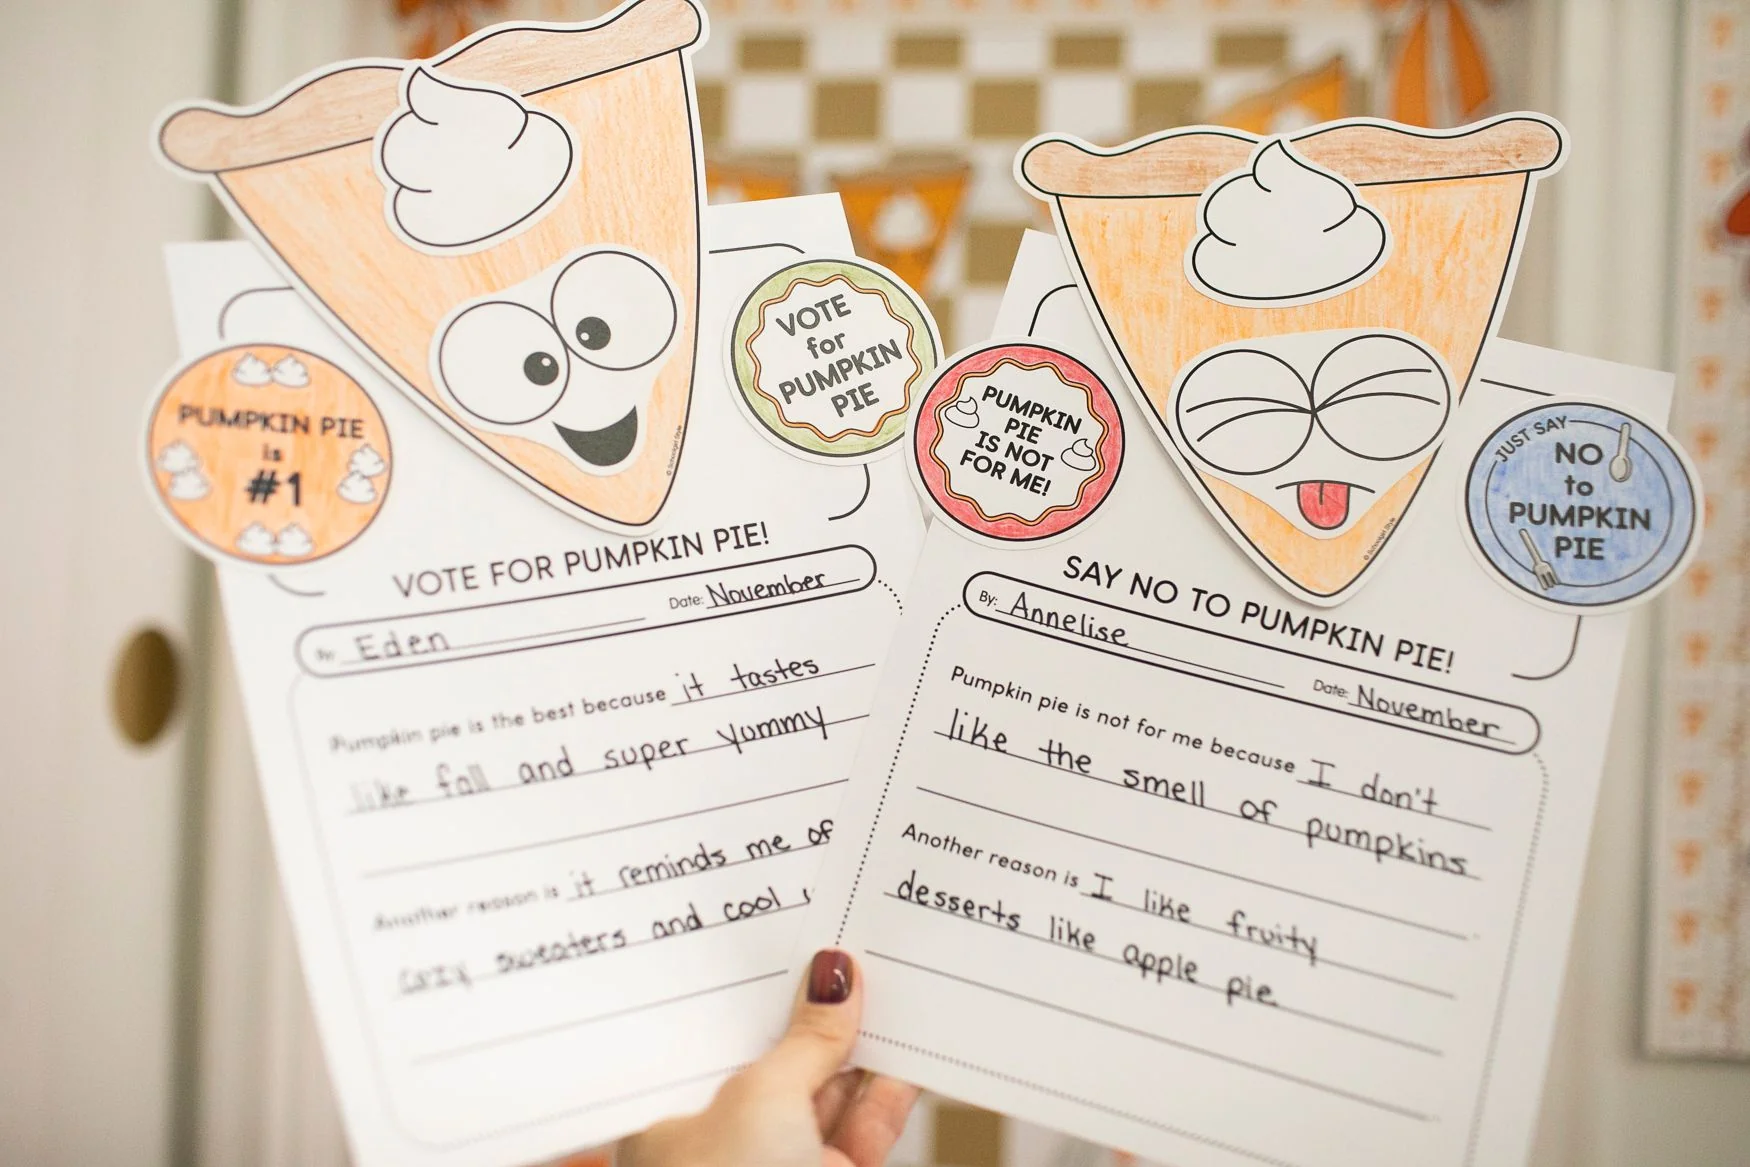 PUMPKIN PIE
is
#1
VOTE
for
PUMPKIN
PIE
© Schoolgirl Style
VOTE FOR PUMPKIN PIE!
By: Eden
Date: November
Pumpkin pie is the best because it tastes
like fall and super yummy
Another reason is it reminds me of
cozy sweaters and cool
PUMPKIN
PIE
IS NOT
FOR ME!
JUST SAY
NO
to
PUMPKIN
PIE
© Schoolgirl Style
SAY NO TO PUMPKIN PIE!
By: Annelise
Date: November
Pumpkin pie is not for me because I don't
like the smell of pumpkins
Another reason is I like fruity
desserts like apple pie.